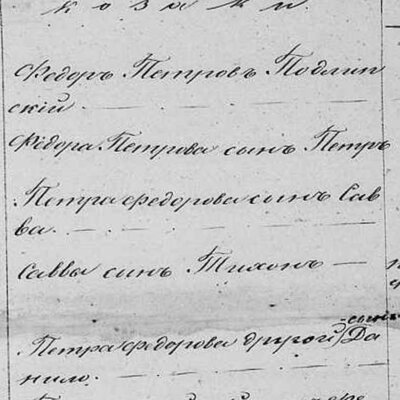 козаки.
Федоръ Петровъ Подлип
скій
Фёдора Петрова сынъ Петръ
Петра Федорова сынъ Сав
ва.
Саввы сынъ Тихонъ —
сынъ
Петра Федорова другой Да
нило.